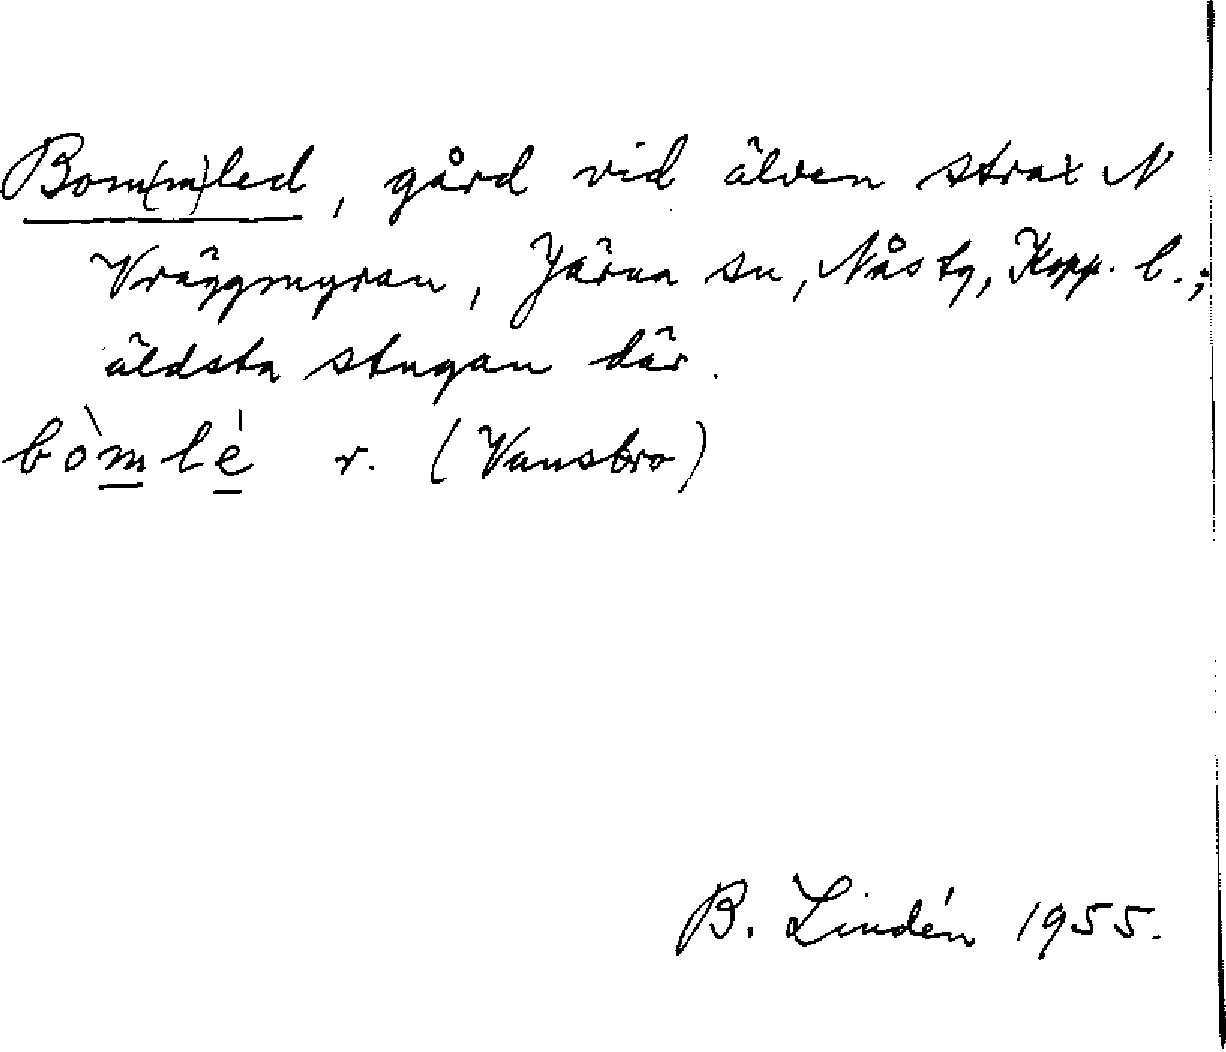 Bom(m)led, gård vid älven strax N
Vräggmyran, Järna sn, Nås tg, Kopp. l.;
äldsta stugan där.
bòmlé r. (Vansbro)
B. Lindén 1955.